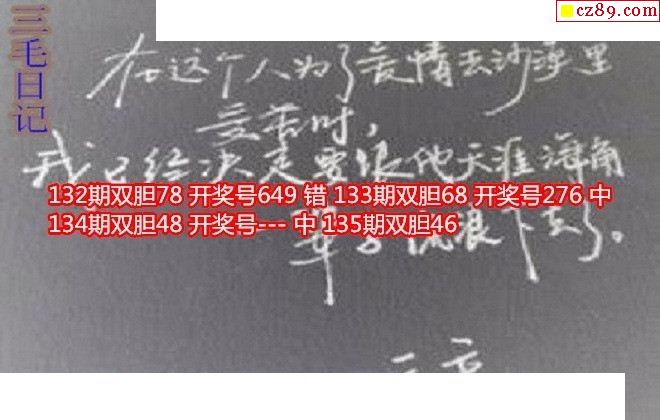 三毛日记
cz89.com
在这个人为了爱情去沙漠里
受苦时，
我已经决定要跟他天涯海角
132期双胆78 开奖号649 错 133期双胆68 开奖号276 中
134期双胆48 开奖号--- 中 135期双胆46
一辈子流浪下去了。
三毛